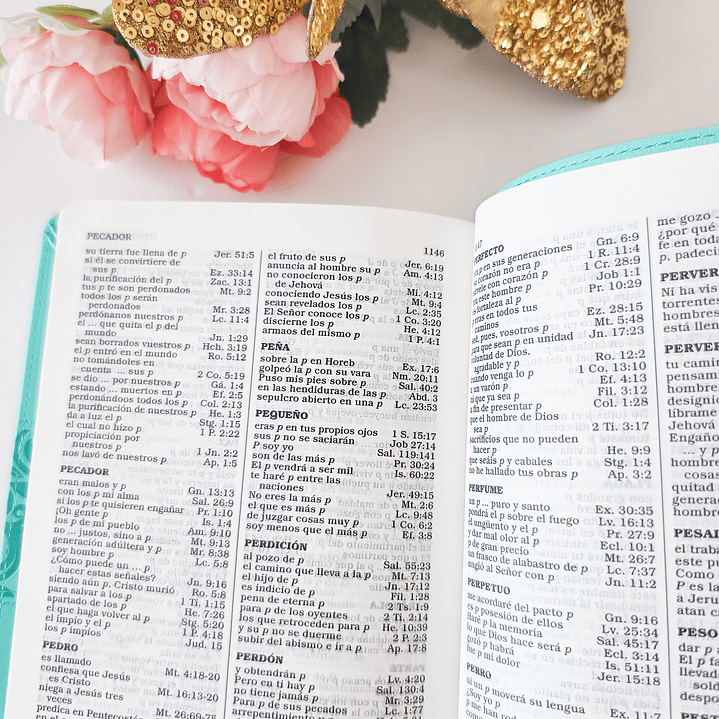 PECADOR
1146
su tierra fue llena de p Jer. 51:5
si él se convirtiere de
sus p Ez. 33:14
la purificación del p Zac. 13:1
tus p te son perdonados Mt. 9:2
todos los p serán
perdonados Mr. 3:28
perdónanos nuestros p Lc. 11:4
el ... que quita el p del
mundo Jn. 1:29
sean borrados vuestros p Hch. 3:19
el p entró en el mundo Ro. 5:12
no tomándoles en
cuenta ... sus p 2 Co. 5:19
se dio ... por nuestros p Gá. 1:4
estando ... muertos en p Ef. 2:5
perdonándoos todos los p Col. 2:13
la purificación de nuestros p He. 1:3
da a luz el p Stg. 1:15
el cual no hizo p 1 P. 2:22
propiciación por
nuestros p 1 Jn. 2:2
nos lavó de nuestros p Ap. 1:5
PECADOR
eran malos y p Gn. 13:13
con los p mi alma Sal. 26:9
si los p te quisieren engañar Pr. 1:10
¡Oh gente p Is. 1:4
los p de mi pueblo Am. 9:10
no ... justos, sino a p Mt. 9:13
generación adúltera y p Mr. 8:38
soy hombre p Lc. 5:8
¿Cómo puede un ... p
hacer estas señales? Jn. 9:16
siendo aún p, Cristo murió Ro. 5:8
para salvar a los p 1 Ti. 1:15
apartado de los p He. 7:26
el que haga volver al p Stg. 5:20
el impío y el p 1 P. 4:18
los p impíos Jud. 15
PEDRO
es llamado Mt. 4:18-20
confiesa que Jesús
es Cristo Mt. 16:13-20
niega a Jesús tres
veces Mt. 26:69-75
predica en Pentecostés
el fruto de sus p Jer. 6:19
anuncia al hombre su p Am. 4:13
no conocieron los p
de Jehová Mi. 4:12
conociendo Jesús los p Mt. 9:4
sean revelados los p Lc. 2:35
El Señor conoce los p 1 Co. 3:20
discierne los p He. 4:12
armaos del mismo p 1 P. 4:1
PEÑA
sobre la p en Horeb Ex. 17:6
golpeó la p con su vara Nm. 20:11
Puso mis pies sobre p Sal. 40:2
en las hendiduras de las p Abd. 3
sepulcro abierto en una p Lc. 23:53
PEQUEÑO
eras p en tus propios ojos 1 S. 15:17
sus p no se saciarán Job 27:14
P soy yo Sal. 119:141
son de las más p Pr. 30:24
El p vendrá a ser mil Is. 60:22
te haré p entre las
naciones Jer. 49:15
No eres la más p Mt. 2:6
el que es más p Lc. 9:48
de juzgar cosas muy p 1 Co. 6:2
soy menos que el más p Ef. 3:8
PERDICIÓN
al pozo de p Sal. 55:23
el camino que lleva a la p Mt. 7:13
el hijo de p Jn. 17:12
es indicio de p Fil. 1:28
pena de eterna p 2 Ts. 1:9
para p de los oyentes 2 Ti. 2:14
los que retroceden para p He. 10:39
y su p no se duerme 2 P. 2:3
subir del abismo e ir a p Ap. 17:8
PERDÓN
y obtendrán p Lv. 4:20
Pero en ti hay p Sal. 130:4
no tiene jamás p Mr. 3:29
Para p de sus pecados Lc. 1:77
arrepentimiento y
en sus generaciones Gn. 6:9
corazón no era p 1 R. 11:4
con corazón p 1 Cr. 28:9
este hombre p Job 1:1
fortaleza al p Pr. 10:29
p eras en todos tus
caminos Ez. 28:15
sed, pues, vosotros p Mt. 5:48
para que sean p en unidad Jn. 17:23
voluntad de Dios,
agradable y p Ro. 12:2
cuando venga lo p 1 Co. 13:10
un varón p Ef. 4:13
ni que ya sea p Fil. 3:12
a fin de presentar p Col. 1:28
que el hombre de Dios
sea p 2 Ti. 3:17
sacrificios que no pueden
hacer p He. 9:9
que seáis p y cabales Stg. 1:4
no he hallado tus obras p Ap. 3:2
PERFUME
un p ... puro y santo Ex. 30:35
pondrá el p sobre el fuego Lv. 16:13
el ungüento y el p Pr. 27:9
y dar mal olor al p Ecl. 10:1
p de gran precio Mt. 26:7
un frasco de alabastro de p Lc. 7:37
ungió al Señor con p Jn. 11:2
PERPETUO
me acordaré del pacto p Gn. 9:16
es p posesión de ellos Lv. 25:34
Haré p la memoria Sal. 45:17
lo que Dios hace será p Ecl. 3:14
gozó p habrá Is. 51:11
fue p mi dolor Jer. 15:18
PERRO
ni un p moverá su lengua Ex. 11:7
¿Soy yo p
me gozo
¿por qué
fe en toda
p, padeci
PERVER
Ni ha vis
torrentes
hombres
está llen
PERVER
tu camin
pensami
hombre
designio
líbrame
Jehová
Engaño
... y p
hombre
cosas
quitad
generac
hombre
PESAD
el traba
este pu
Como
a Jeru
atan ca
PESO
dar p a
El p fa
llevado